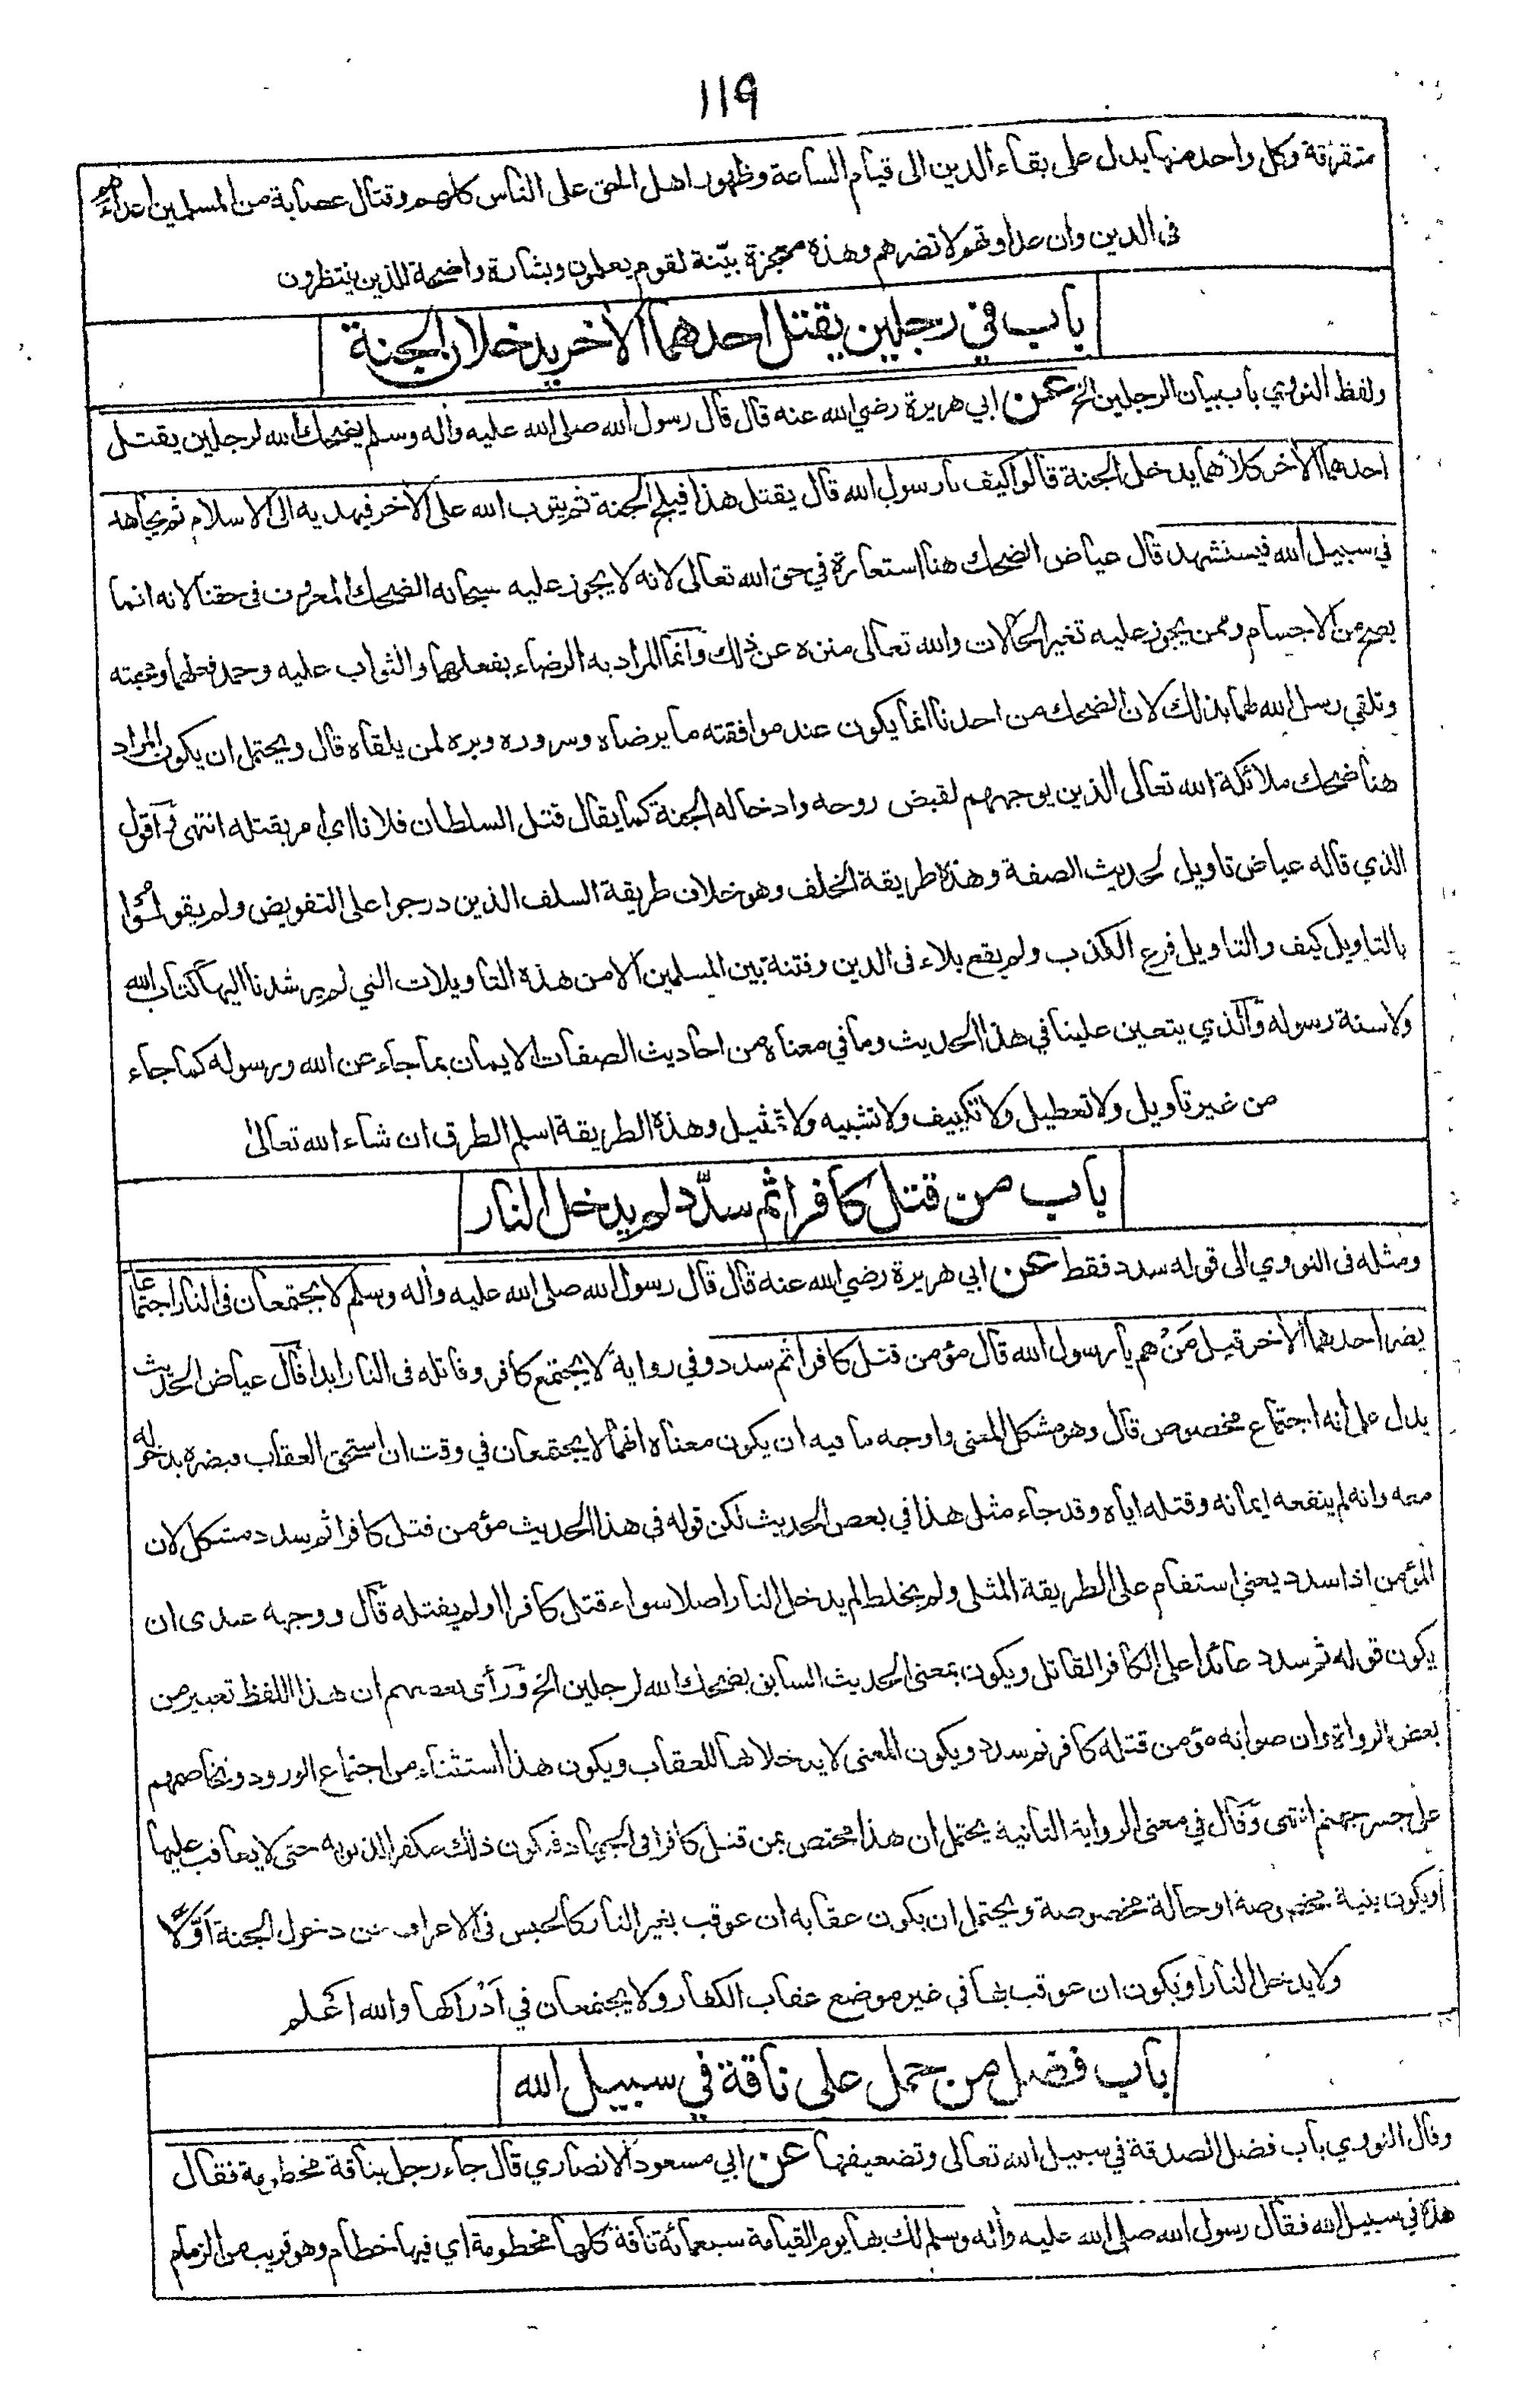 119
متفرقة وكل واحد منها يدل على بقاء الدين الى قيام الساعة وظهور اهل الحق على الناس كلهم وقتال عصابة من المسلمين اعداءهم
فى الدين وان عداوتهم لا تضرهم وهذه معجزة بيّنة لقوم يعلمون وبشارة واضحة للذين ينتظرون
باب في رجلين يقتل احدهما الآخر يدخلان الجنة
ولفظ النووي باب بيان الرجلين الخ عن ابي هريرة رضي الله عنه قال قال رسول الله صلى الله عليه وآله وسلم يضحك الله لرجلين يقتل
احدهما الآخر كلاهما يدخل الجنة قالوا كيف يا رسول الله قال يقتل هذا فيلج الجنة ثم يتوب الله على الآخر فيهديه الى الاسلام ثم يجاهد
في سبيل الله فيستشهد قال عياض الضحك هنا استعارة في حق الله تعالى لانه لا يجوز عليه سبحانه الضحك المعروف فى حقنا لانه انما
يصح من الاجسام وممن يجوز عليه تغير الحالات والله تعالى منزه عن ذلك وانما المراد به الرضاء بفعلهما والثواب عليه وحمد فعلهما ومحبته
وتلقي رسل الله لهما بذلك لان الضحك من احدنا انما يكون عند موافقته ما يرضاه وسروره وبره لمن يلقاه قال ويحتمل ان يكون المراد
هنا ضحك ملائكة الله تعالى الذين يوجههم لقبض روحه وادخاله الجنة كما يقال قتل السلطان فلانا اي امر بقتله انتهى واقول
الذي قاله عياض تاويل لحديث الصفة وهذه طريقة الخلف وهو خلاف طريقة السلف الذين درجوا على التفويض ولم يقولوا
بالتاويل كيف والتاويل فرع الكذب ولم يقع بلاء فى الدين وفتنة بين المسلمين الا من هذه التاويلات التي لم يرشدنا اليها كتاب الله
ولا سنة رسوله والذي يتعين علينا في هذا الحديث وما في معناه من احاديث الصفات الايمان بما جاء عن الله ورسوله كما جاء
من غير تاويل ولا تعطيل ولا تكييف ولا تشبيه ولا تمثيل وهذه الطريقة اسلم الطرق ان شاء الله تعالى
باب من قتل كافرا ثم سدّد لم يدخل النار
ومثله فى النووي الى قوله سدد فقط عن ابي هريرة رضي الله عنه قال قال رسول الله صلى الله عليه وآله وسلم لا يجتمعان فى النار اجتماعا
يضر احدهما الآخر قيل مَنْ هم يا رسول الله قال مؤمن قتل كافرا ثم سدد وفي رواية لا يجتمع كافر وقاتله فى النار ابدا قال عياض الحديث
يدل على انه اجتماع مخصوص قال وهو مشكل المعنى واوجه ما فيه ان يكون معناه انهما لا يجتمعان في وقت ان استحق العقاب فيضره بدخوله
معه وانه لم ينفعه ايمانه وقتله اياه وقد جاء مثل هذا في بعض الحديث لكن قوله في هذا الحديث مؤمن قتل كافرا ثم سدد مشكل لان
المؤمن اذا سدد يعني استقام على الطريقة المثلى ولم يخلط لم يدخل النار اصلا سواء قتل كافرا او لم يقتله قال ووجهه عندى ان
يكون قوله ثم سدد عائدا على الكافر القاتل ويكون بمعنى الحديث السابق يضحك الله لرجلين الخ ورأى بعضهم ان هذا اللفظ تعبير من
بعض الرواة وان صوابه مؤمن قتله كافر ثم سدد ويكون المعنى لا يدخلاها للعقاب ويكون هذا استثناء من اجتماع الورود وتخاصمهم
على جسر جهنم انتهى وقال في معنى الرواية الثانية يحتمل ان هذا مختص بمن قتل كافرا فى الجهاد فيكون ذلك مكفرا لذنوبه حتى لا يعاقب عليها
او يكون بنية مخصوصة او حالة مخصوصة ويحتمل ان يكون عقابه ان عوقب بغير النار كالحبس فى الاعراف عن دخول الجنة اوّلًا
ولا يدخل النار او يكون ان عوقب بها في غير موضع عقاب الكفار ولا يجتمعان في ادْراكها والله اعلم
باب فضل من حمل على ناقة في سبيل الله
وقال النووي باب فضل الصدقة في سبيل الله تعالى وتضعيفها عن ابي مسعود الانصاري قال جاء رجل بناقة مخطومة فقال
هذه في سبيل الله فقال رسول الله صلى الله عليه وآله وسلم لك بها يوم القيامة سبعمائة ناقة كلها مخطومة اي فيها خطام وهو قريب من الزمام